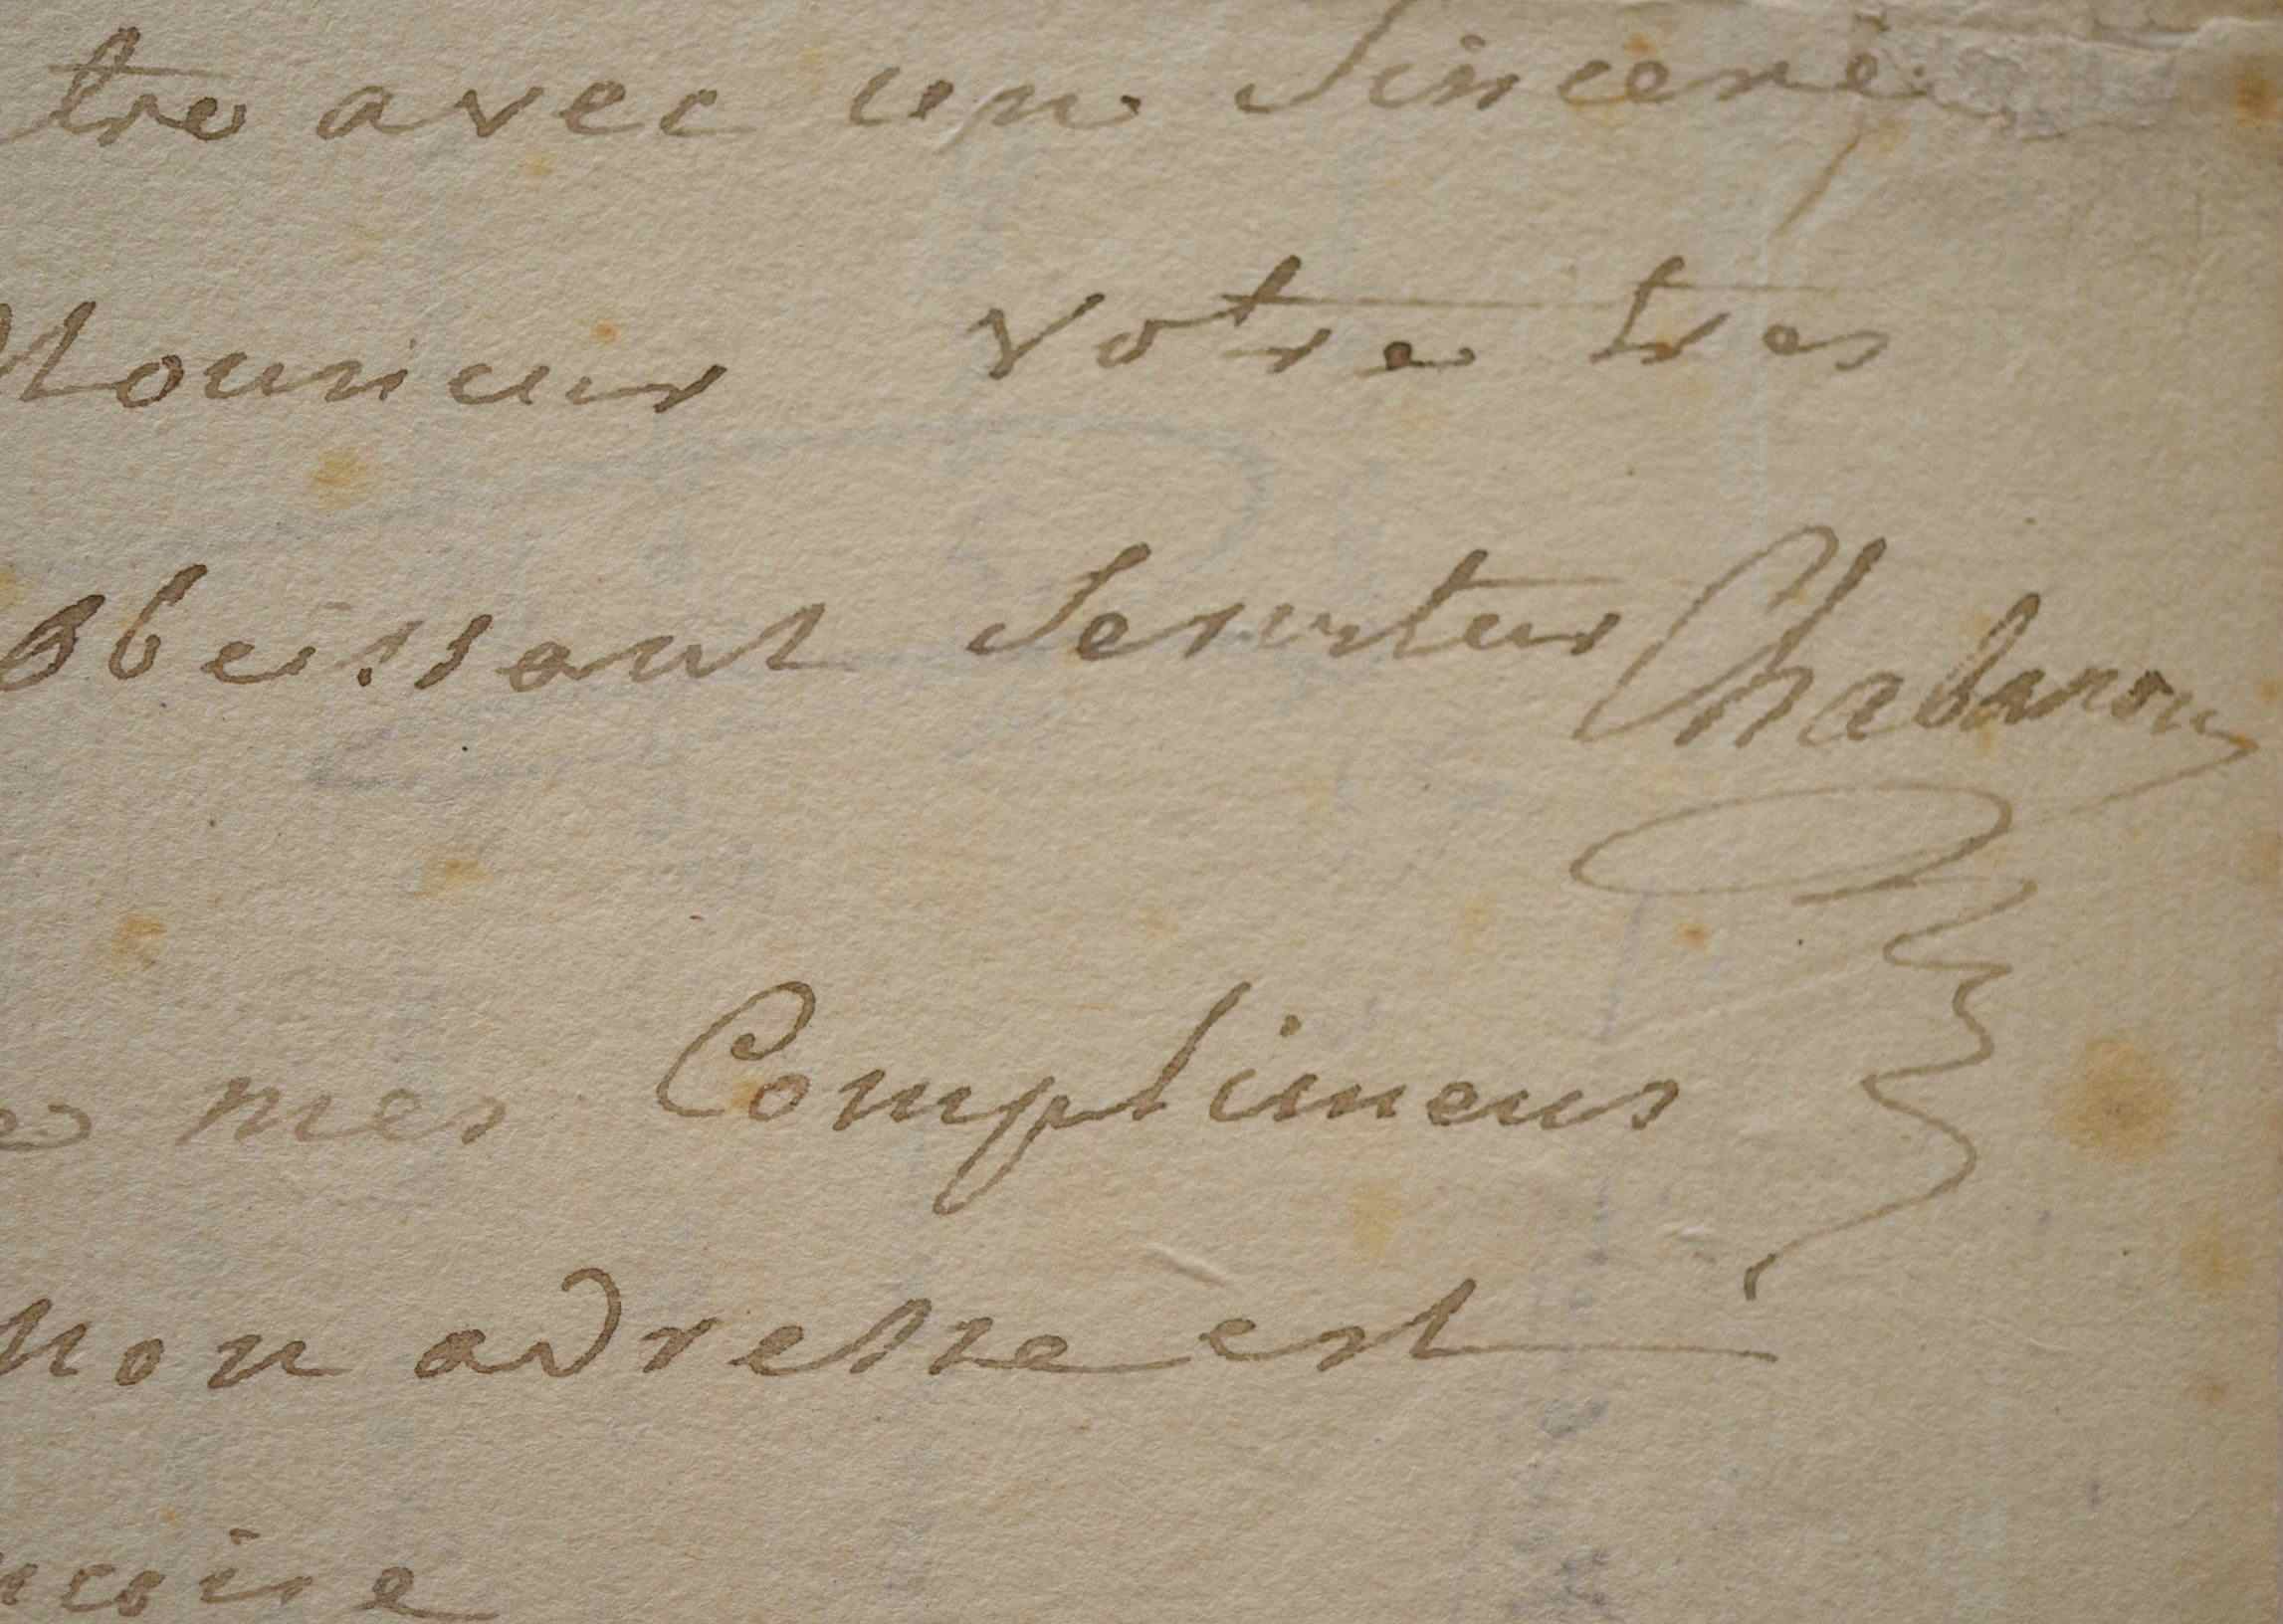 tre avec un Sincere
Monsieur votre tres
obeissant Serviteur Chabanon
mes Complimens
mon adresse est